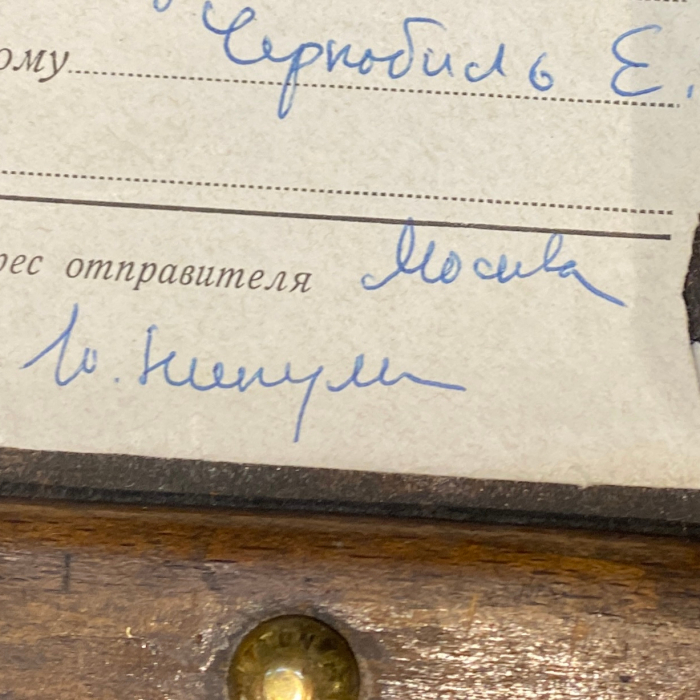 ому Чернобиль Е.
рес отправителя Москва
Ю. Никулин